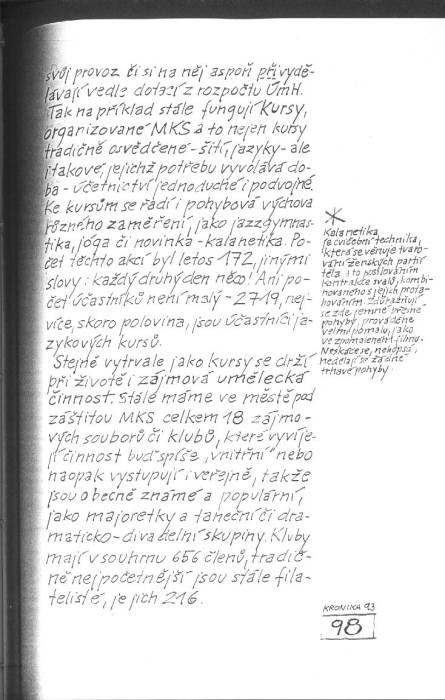 svůj provoz či si na něj aspoň přivydě-
lávají vedle dotací z rozpočtu ÚmH.
Tak na příklad stále fungují Kursy,
organizované MKS a to nejen kursy
tradičně osvědčené - šití, jazyky - ale
i takové, jejichž potřebu vyvolává do-
ba - účetnictví jednoduché i podvojné.
Ke kursům se řadí i pohybová výchova
různého zaměření, jako jazzgymnas-
tika, jóga či novinka - kalanetika. Po-
čet těchto akcí byl letos 172, jinými
slovy: každý druhý den něco! Ani po-
čet účastníků není malý - 2719, nej-
více, skoro polovina, jsou účastníci ja-
zykových kursů.
Stejně vytrvale jako kursy se drží
při životě i zájmová umělecká
činnost. Stále máme ve městě pod
záštitou MKS celkem 18 zájmo-
vých souborů či klubů, které vyvíje-
jí činnost buď spíše „vnitřní" nebo
naopak vystupují i veřejně, takže
jsou obecně známé a populární,
jako majoretky a taneční či dra-
maticko-divadelní skupiny. Kluby
mají v souhrnu 656 členů, tradič-
ně nejpočetnější jsou stále fila-
telisté, je jich 216.
*
Kalanetika
je cvičební technika,
která se věnuje tvaro-
vání ženských partií
těla a to posilováním
kontrakce svalů, kombi-
novaného s jejich prota-
hováním. Zdůrazňují
se zde jemné přesné
pohyby, prováděné
velmi pomalu, jako
ve zpomaleném filmu.
Neskáče se, nehopsá,
nedělají se žádné
trhavé pohyby.
KRONIKA 93
98